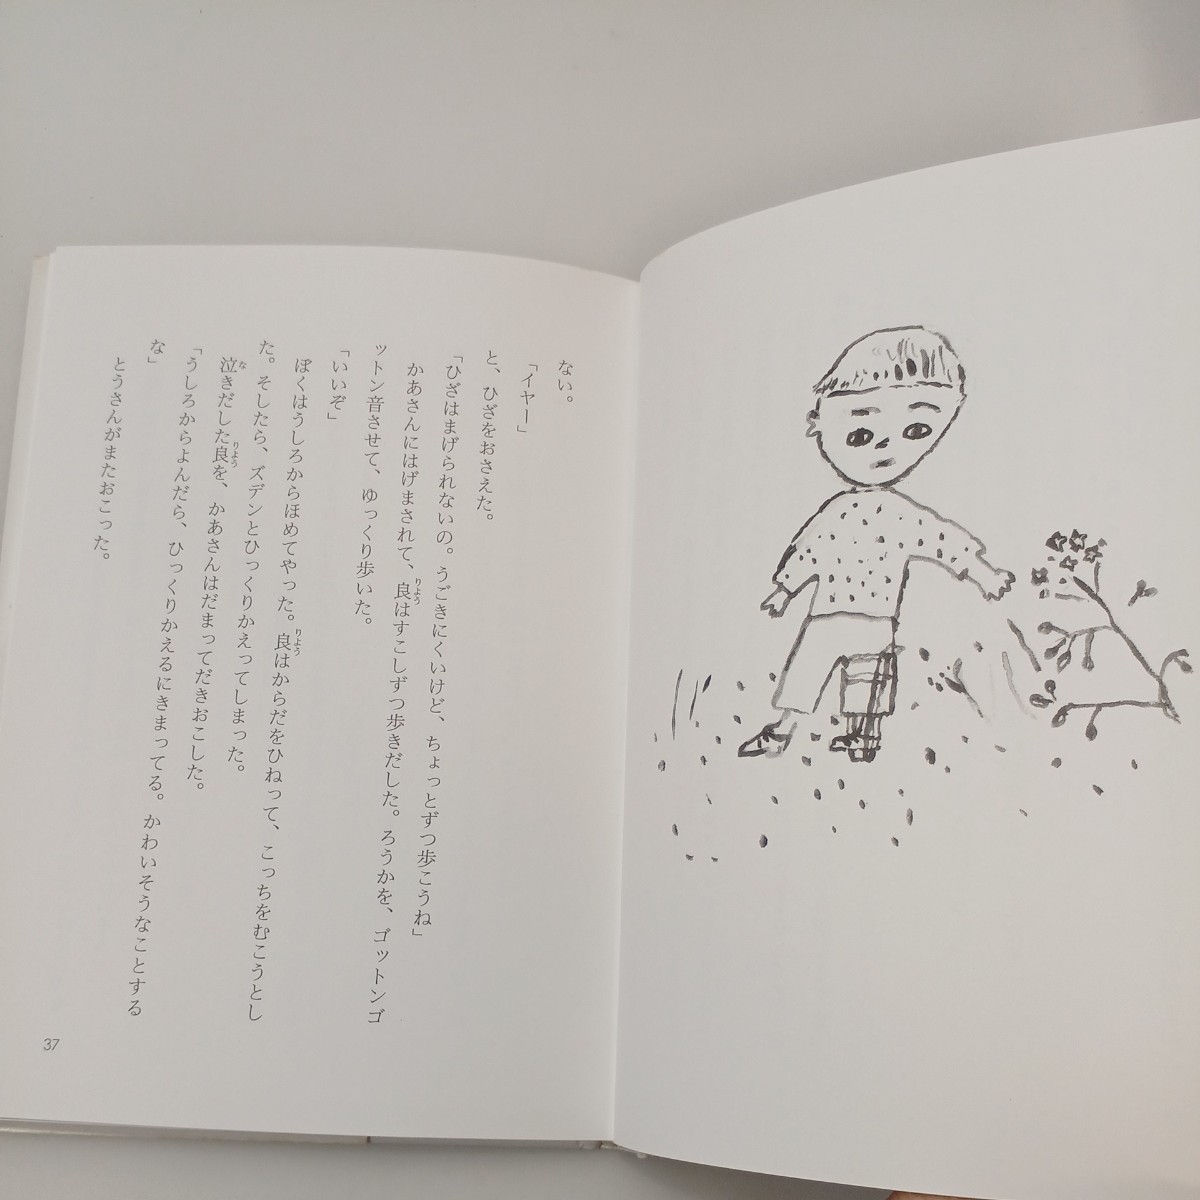 ない。
「イヤー」
と、ひざをおさえた。
「ひざはまげられないの。うごきにくいけど、ちょっとずつ歩こうね」
かあさんにはげまされて、良はすこしずつ歩きだした。ろうかを、ゴットンゴ
ットン音させて、ゆっくり歩いた。
「いいぞ」
ぼくはうしろからほめてやった。良はからだをひねって、こっちをむこうとし
た。そしたら、ズデンとひっくりかえってしまった。
泣きだした良を、かあさんはだまってだきおこした。
「うしろからよんだら、ひっくりかえるにきまってる。かわいそうなことする
な」
とうさんがまたおこった。
37